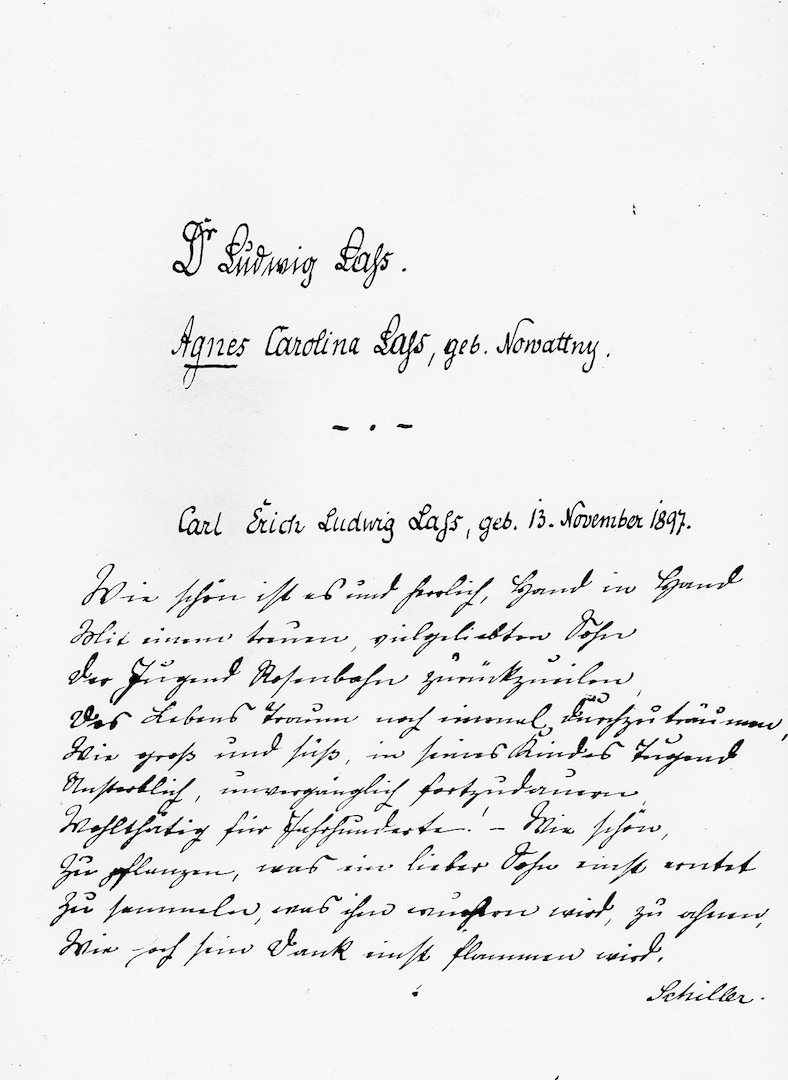 Dr Ludwig Laſs.
Agnes Carolina Laſs, geb. Nowattny.
– . –
Carl Erich Ludwig Laſs, geb. 13. November 1897.
Wie schön ist es und herrlich, Hand in Hand
Mit einem treuen, vielgeliebten Sohn
Der Jugend Rosenbahn zurückzueilen,
Des Lebens Traum noch einmal durchzuträumen,
Wie groß und süß, in seines Kindes Tugend
Unsterblich, unvergänglich fortzudauern,
Wohlthätig für Jahrhunderte! – Wie schön,
Zu pflanzen, was ein lieber Sohn einst erntet
Zu sammeln, was ihm wuchern wird, zu ahnen,
Wie hoch sein Dank einst flammen wird.
Schiller.